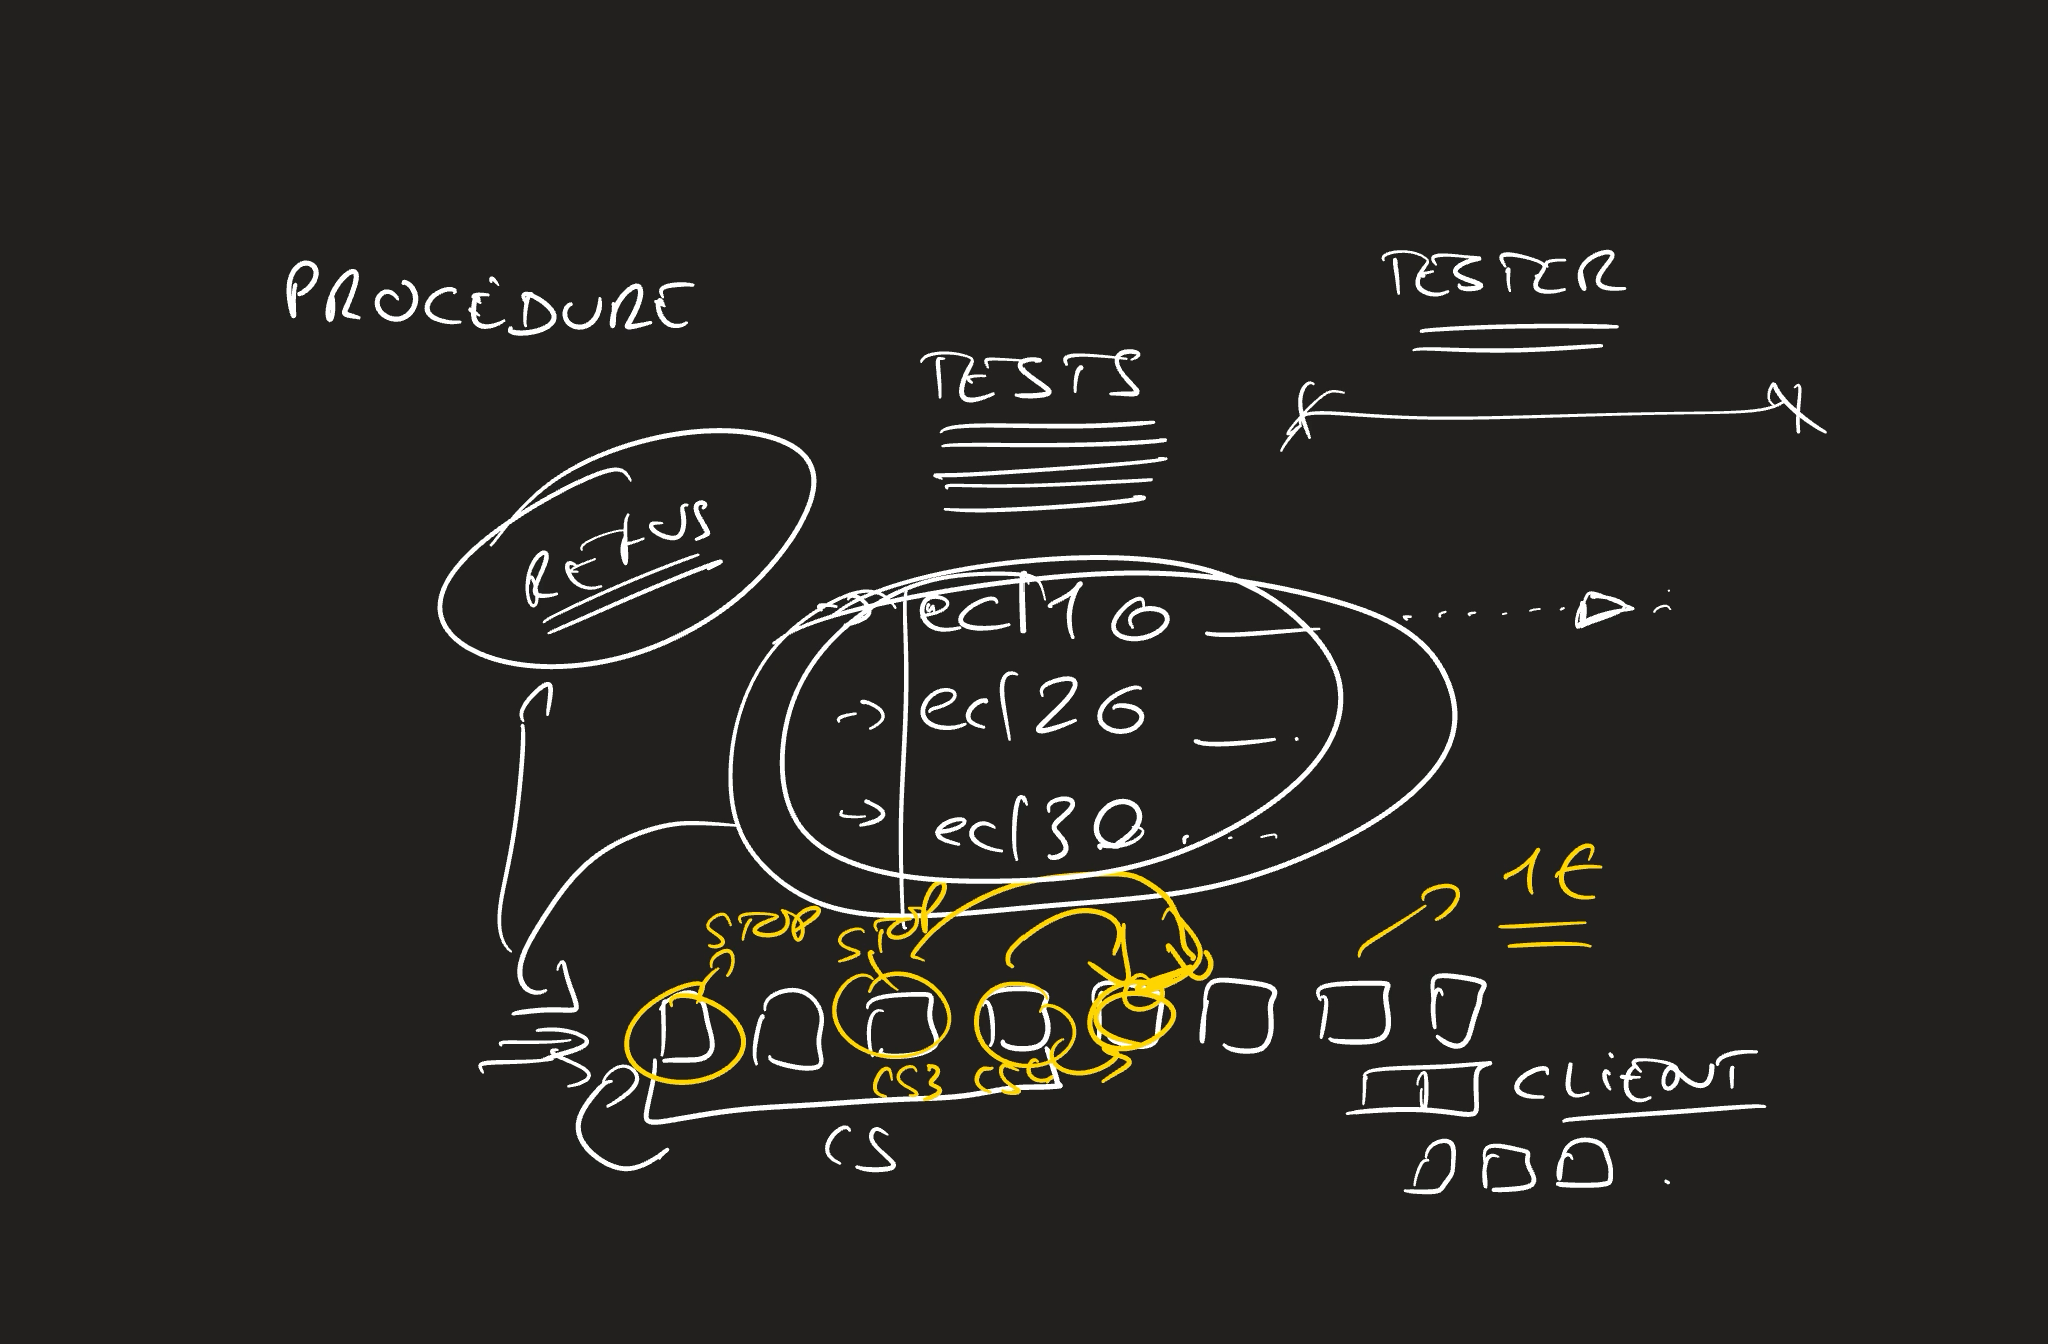 PROCÉDURE
TESTER
TESTS
REFUS
ecl10
ecl20
ecl30
1€
STOP
STOP
CS3
CS
CLIENT